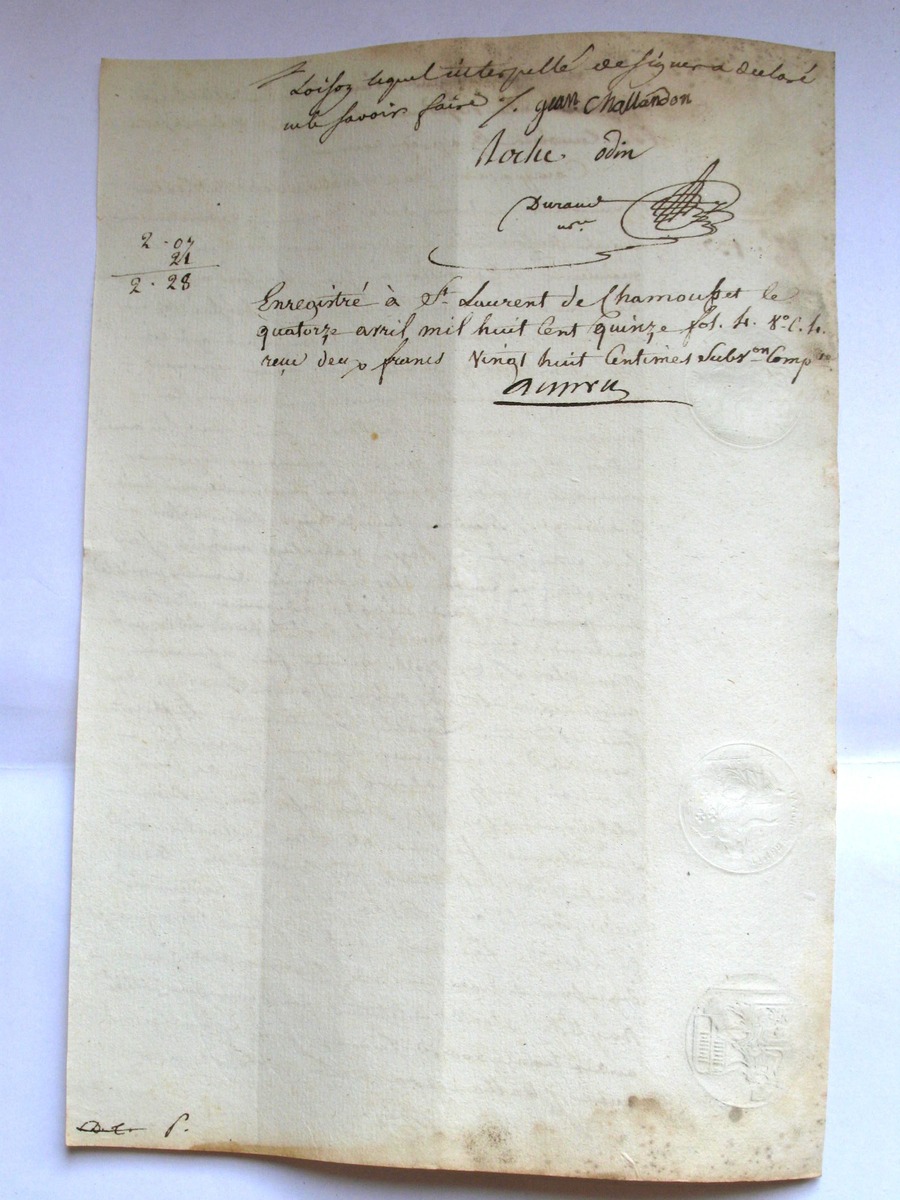 Loison lequel interpellé de signer a déclaré
ne le savoir faire /. jean challandon
Roche odin
Durand
nre
2 . 07
21
2 . 28
Enregistré à St Laurent de Chamousset le
quatorze avril mil huit cent quinze fol. 4. Vo. C. 4.
reçu deux francs vingt huit centimes Subvon Comp